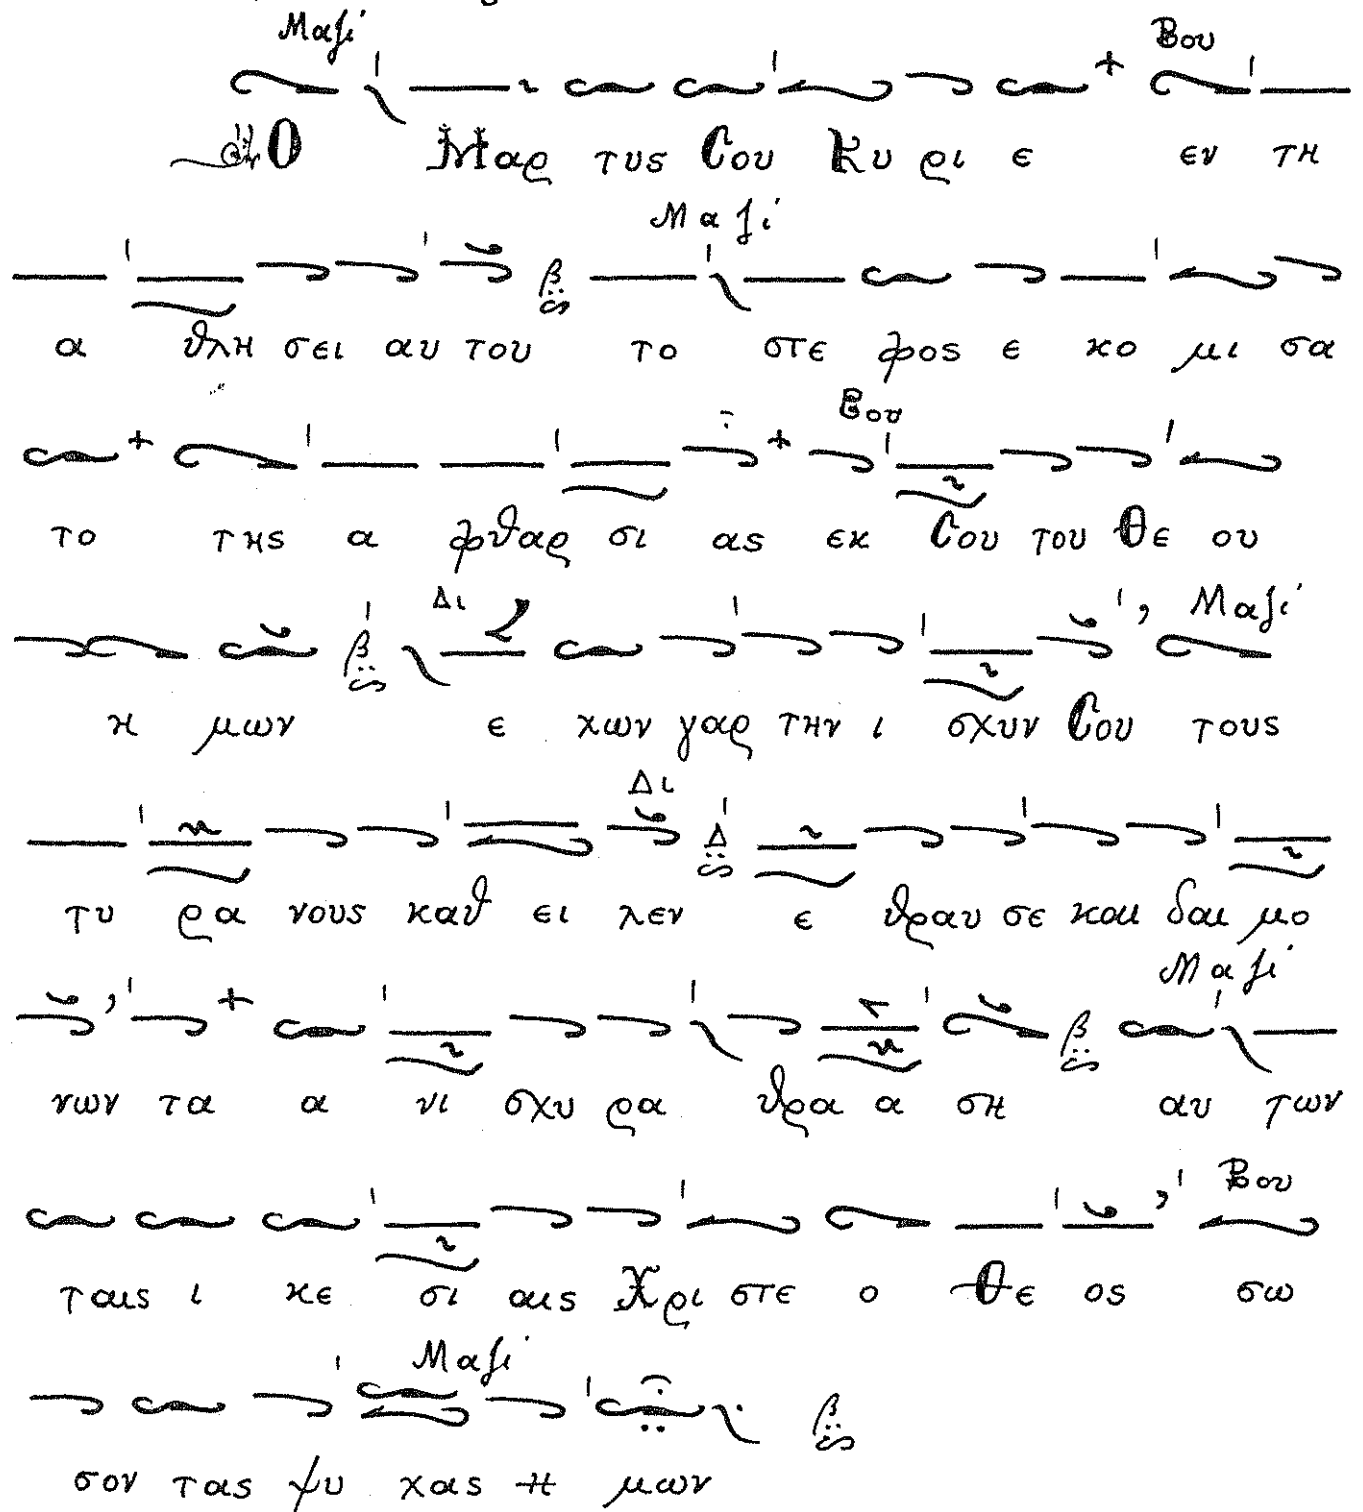 Μαζί Βου
Ο Μαρ τυς Σου Κυ ρι ε εν τη
Μαζί
β
α θλη σει αυ του το στε φος ε κο μι σα
Βου
το της α φθαρ σι ας εκ Σου του Θε ου
β Δι Μαζί
η μων ε χων γαρ την ι σχυν Σου τους
Δι
Δ
τυ ρα νους καθ ει λεν ε θραυ σε και δαι μο
Μαζί
β
νων τα α νι σχυ ρα θρα α ση αυ των
Βου
ταις ι κε σι αις Χρι στε ο Θε ος σω
Μαζί
β
σον τας ψυ χας η μων